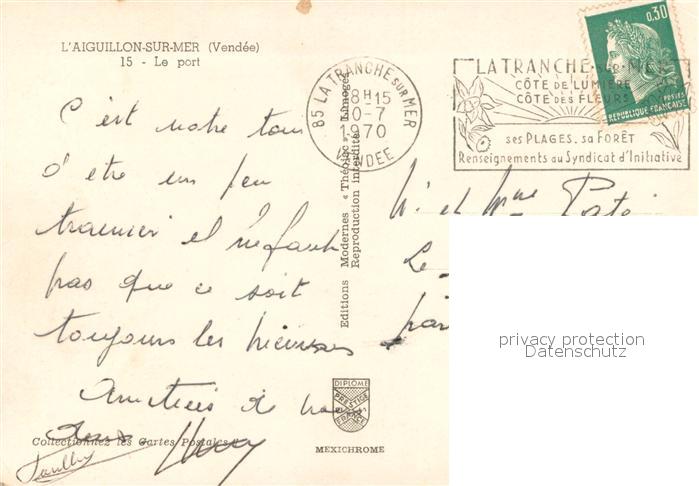 L'AIGUILLON-SUR-MER (Vendée)
15 - Le port
C'est notre tour
d'être un peu
et il ne faut
pas que ce soit
toujours les mêmes
Amitiés de nous
Collectionnez les Cartes Postales
Editions Modernes « Théojac » Limoges
Reproduction Interdite
85 LA TRANCHE SUR MER
18H15
10-7
1970
VENDEE
LA TRANCHE-sur-MER
CÔTE DE LUMIÈRE
CÔTE DES FLEURS
ses PLAGES. sa FORÊT
Renseignements au Syndicat d'Initiative
0,30
POSTES
REPUBLIQUE FRANÇAISE
M. et Mme
Le
par
privacy protection
Datenschutz
DIPLOME
PRESTIGE
FRANCE
MEXICHROME